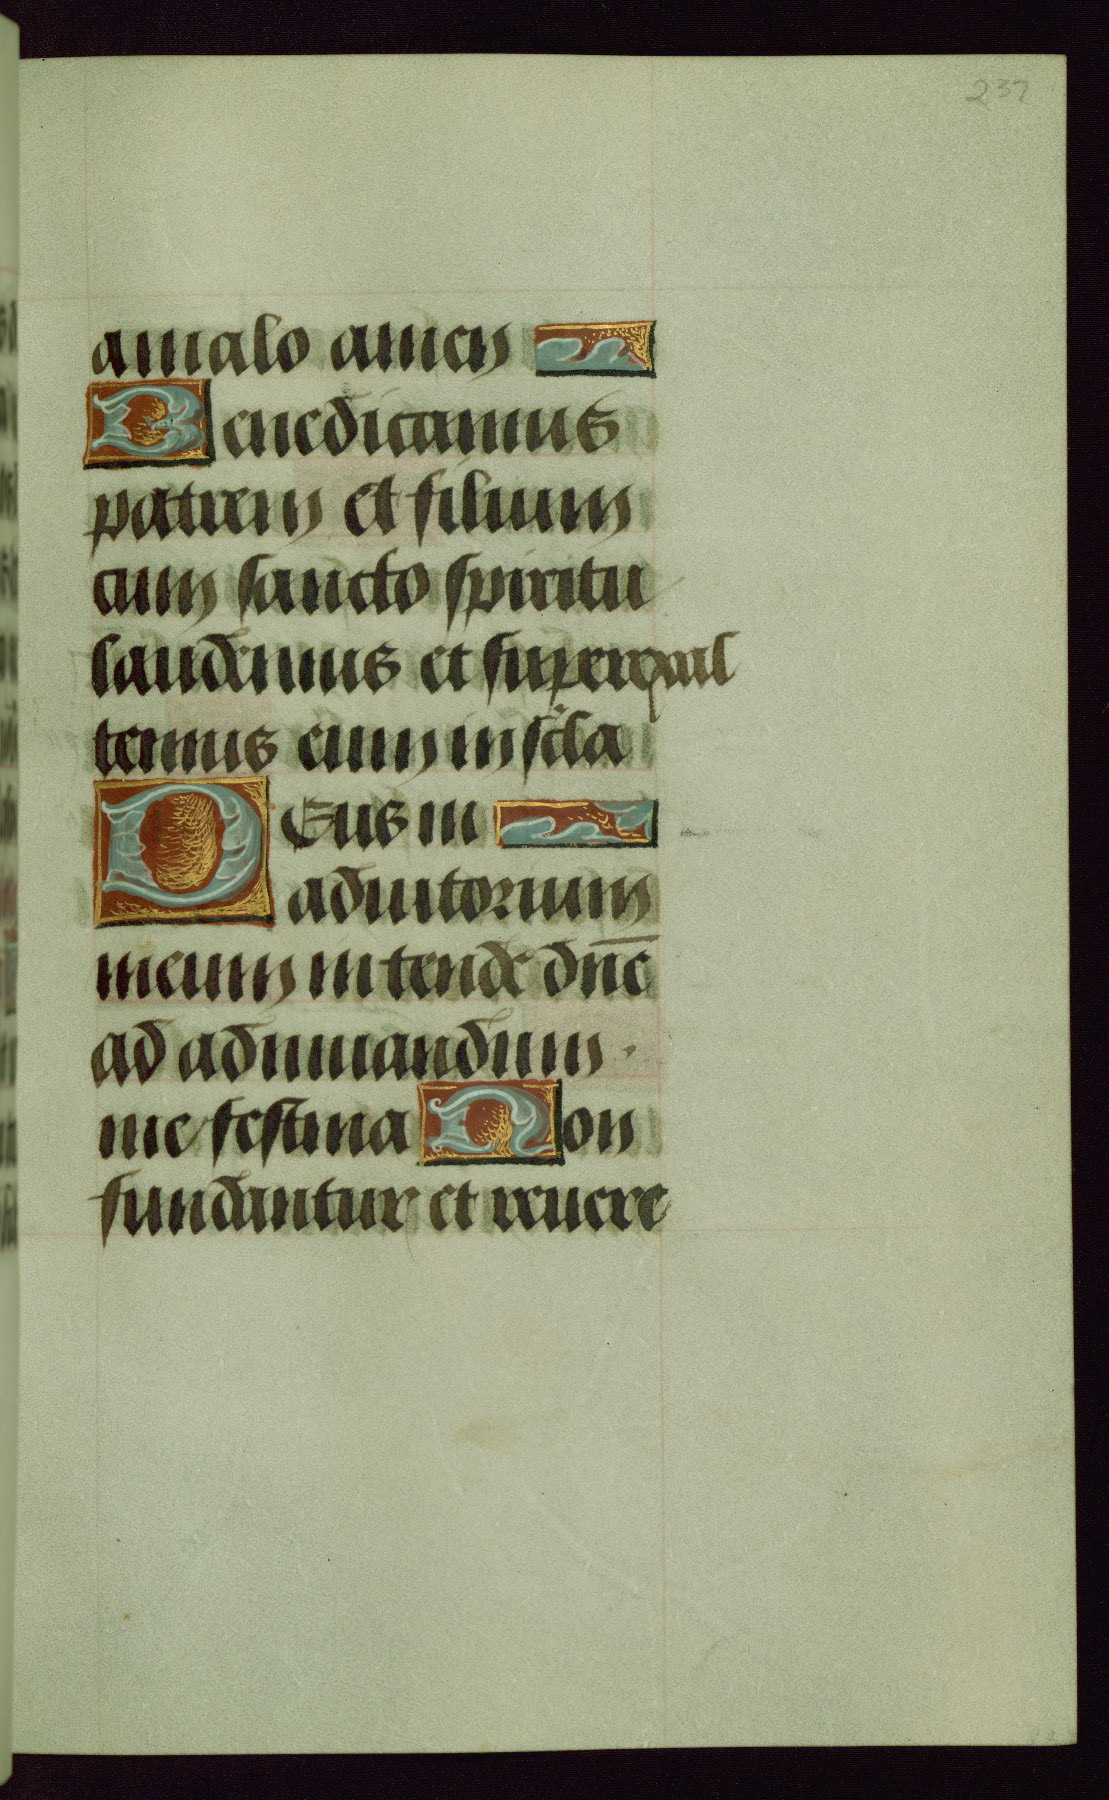 237
a malo amen
Benedicamus
patrem et filium
cum sancto spiritu
laudemus et superexal
temus eum in scla
Deus in
adiutorium
meum intende dne
ad adiuuandum
me festina Con
fundantur et reuere